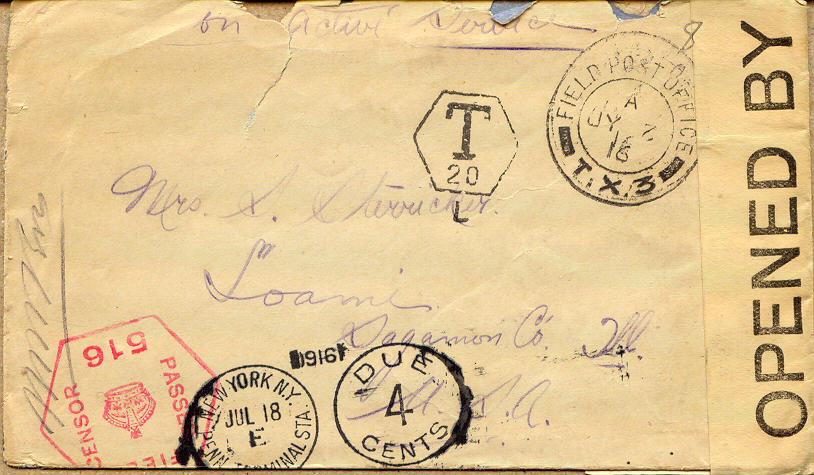 on Active Service
8
OPENED BY
FIELD POST OFFICE
A
JY 2
16
T.X.3
T
20
L
Mrs. S.
Loami
Sagamon Co. Ill.
U.S.A.
516
PASSE
CENSOR
FIE
1916
NEW YORK N.Y.
JUL 18
E
PENN. TERMINAL STA.
DUE
4
CENTS